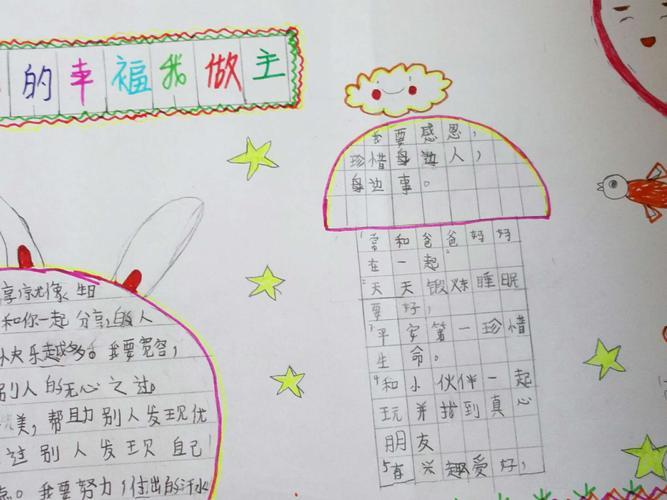 的幸福我做主
我要感恩，
珍惜身边人，
身边事。
1常和爸爸妈妈好好
在一起
2天天锻炼睡眠
要好，
3平安第一珍惜
生命。
4和小伙伴一起
玩并找到真心
朋友
5有兴趣爱好，
享，就像生日
和你一起分享的人
快乐越多。我要宽容，
别人的无心之过。
美，帮助别人发现优
过别人发现自己
点。我要努力，付出的汗水